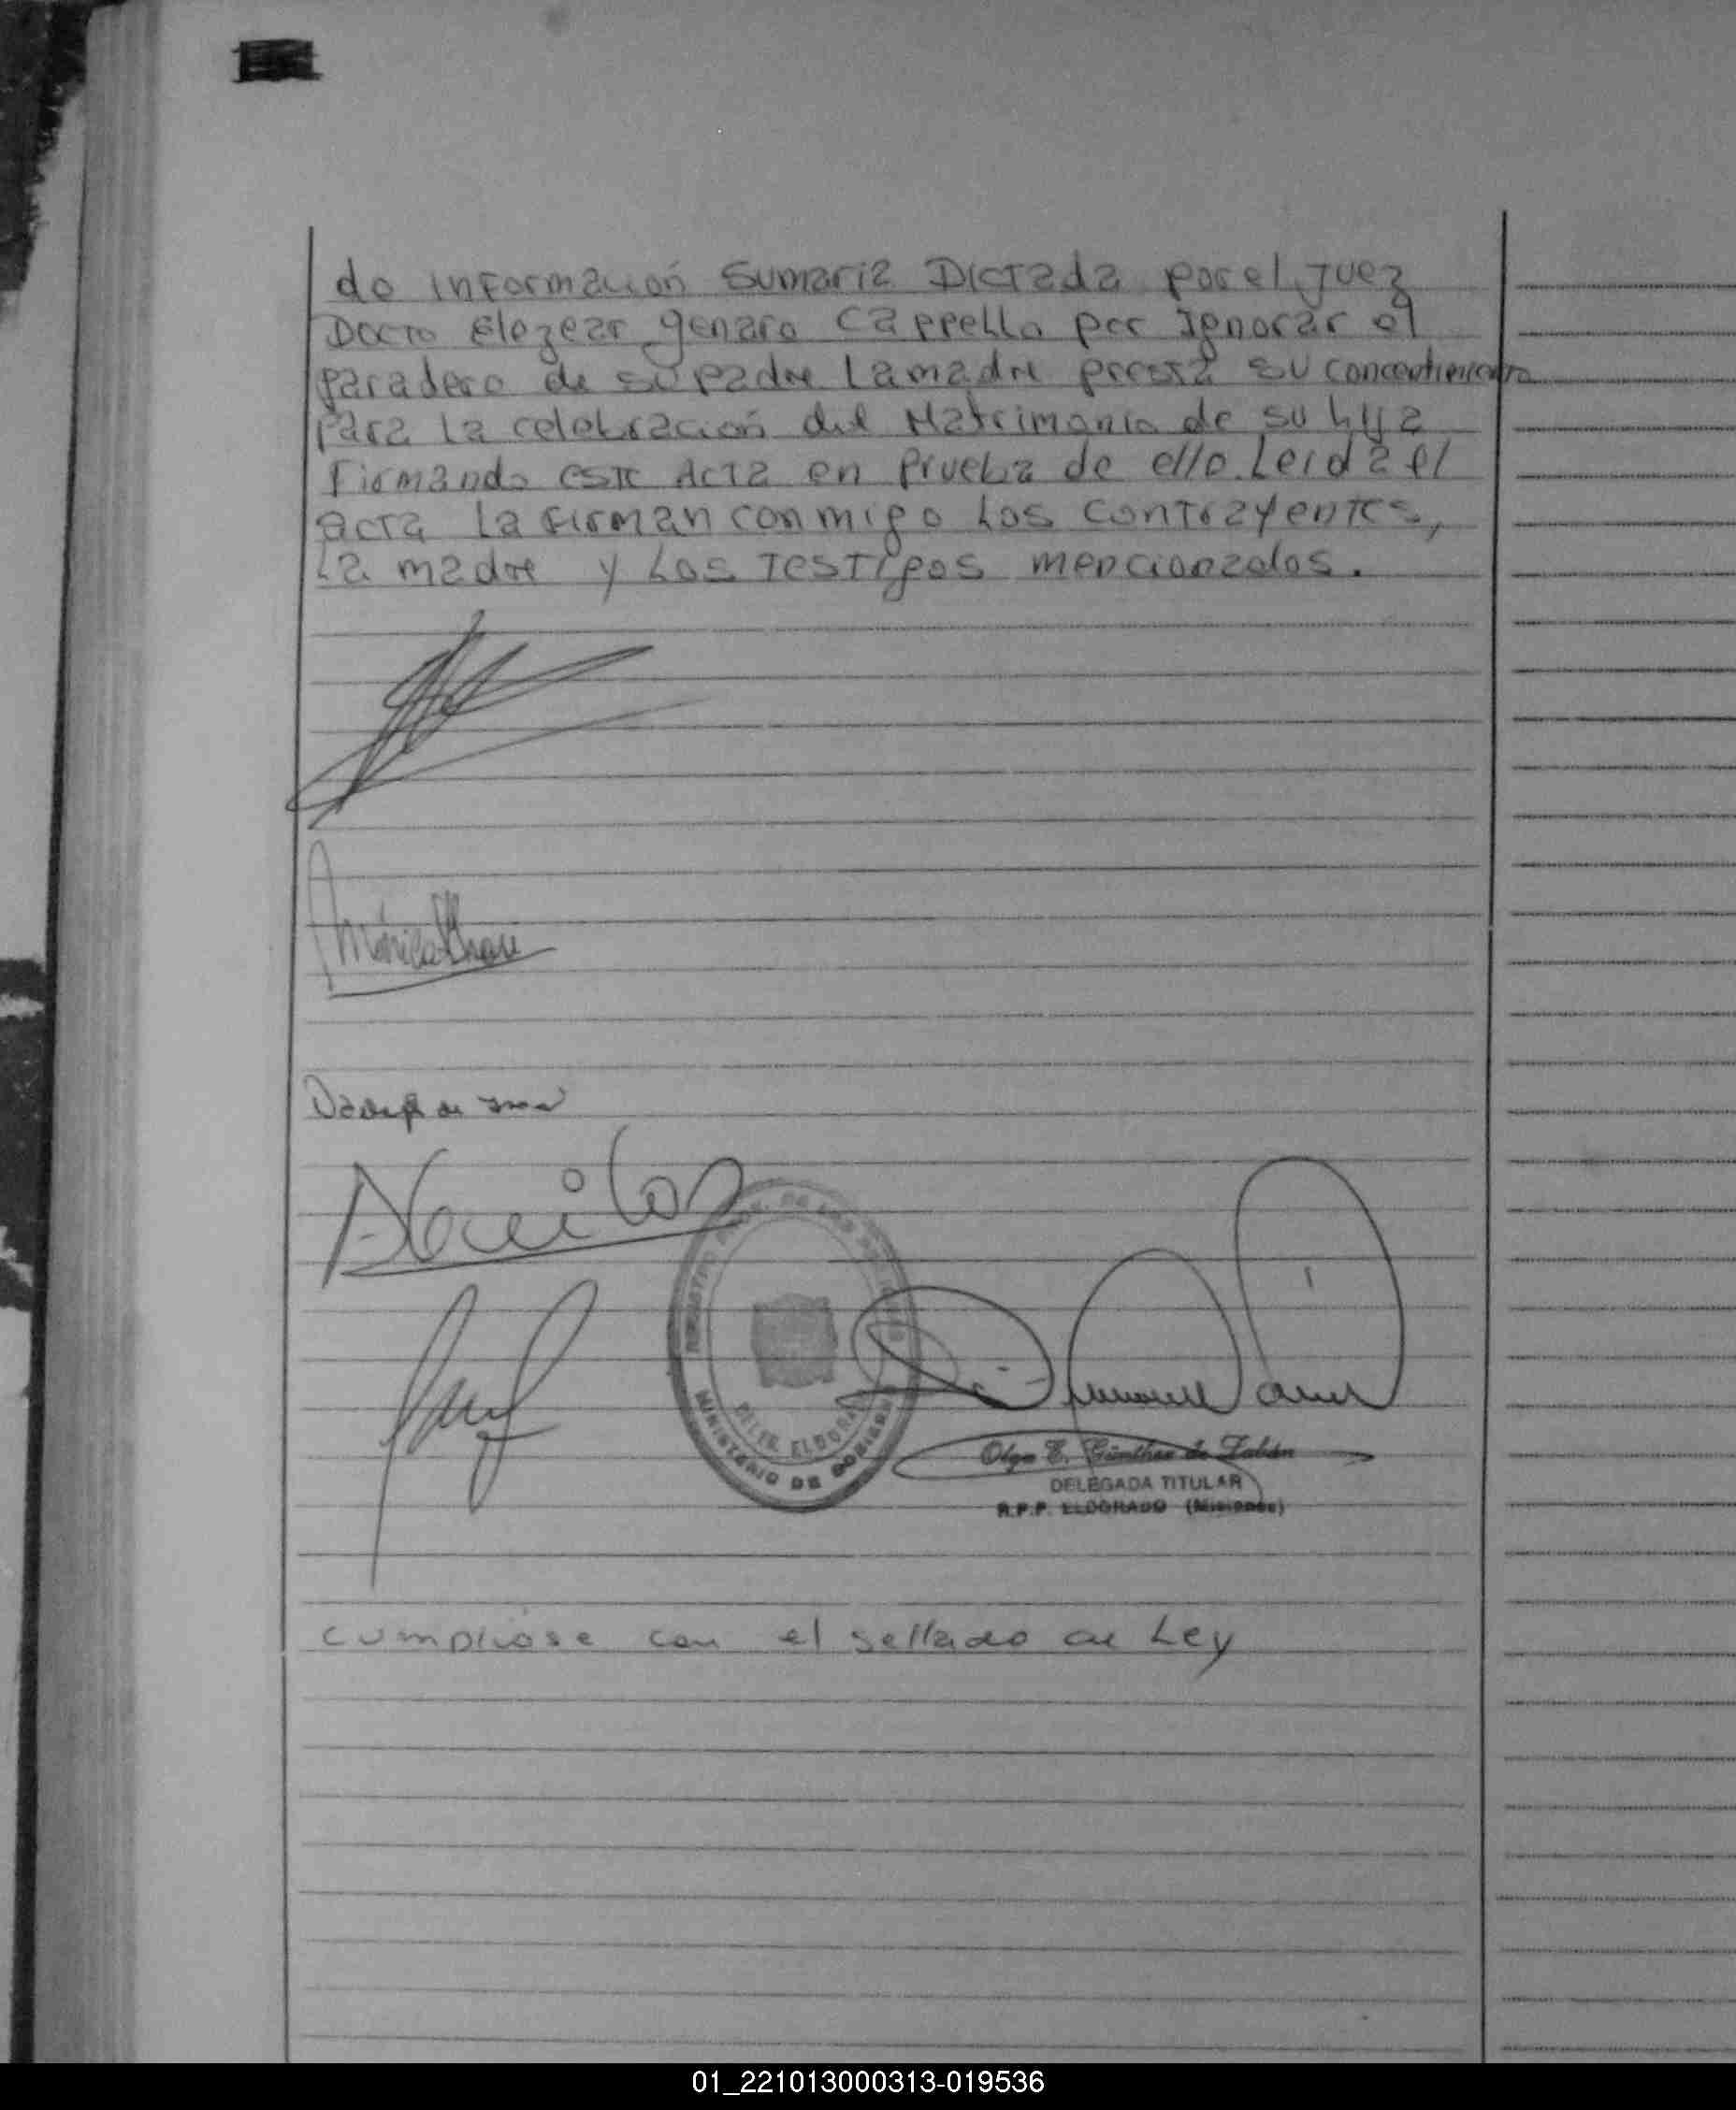 do información Sumaria Dictada por el Juez
Docto Elezear genaro Cappello por Ignorar el
paradero de su padre La madre presta su concentimiento
para La celebración del Matrimonio de su hija
Firmando este Acta en prueba de ello. Leida el
acta La firman conmigo Los contrayentes,
La madre y Los Testigos mencionados.
Monica
MINISTERIO DE GOBIERNO
DELEG. ELDORADO
Olga E. Günther de Zabán
DELEGADA TITULAR
R.P.P. ELDORADO (Misiones)
cumpliose con el sellado de Ley
01_221013000313-019536